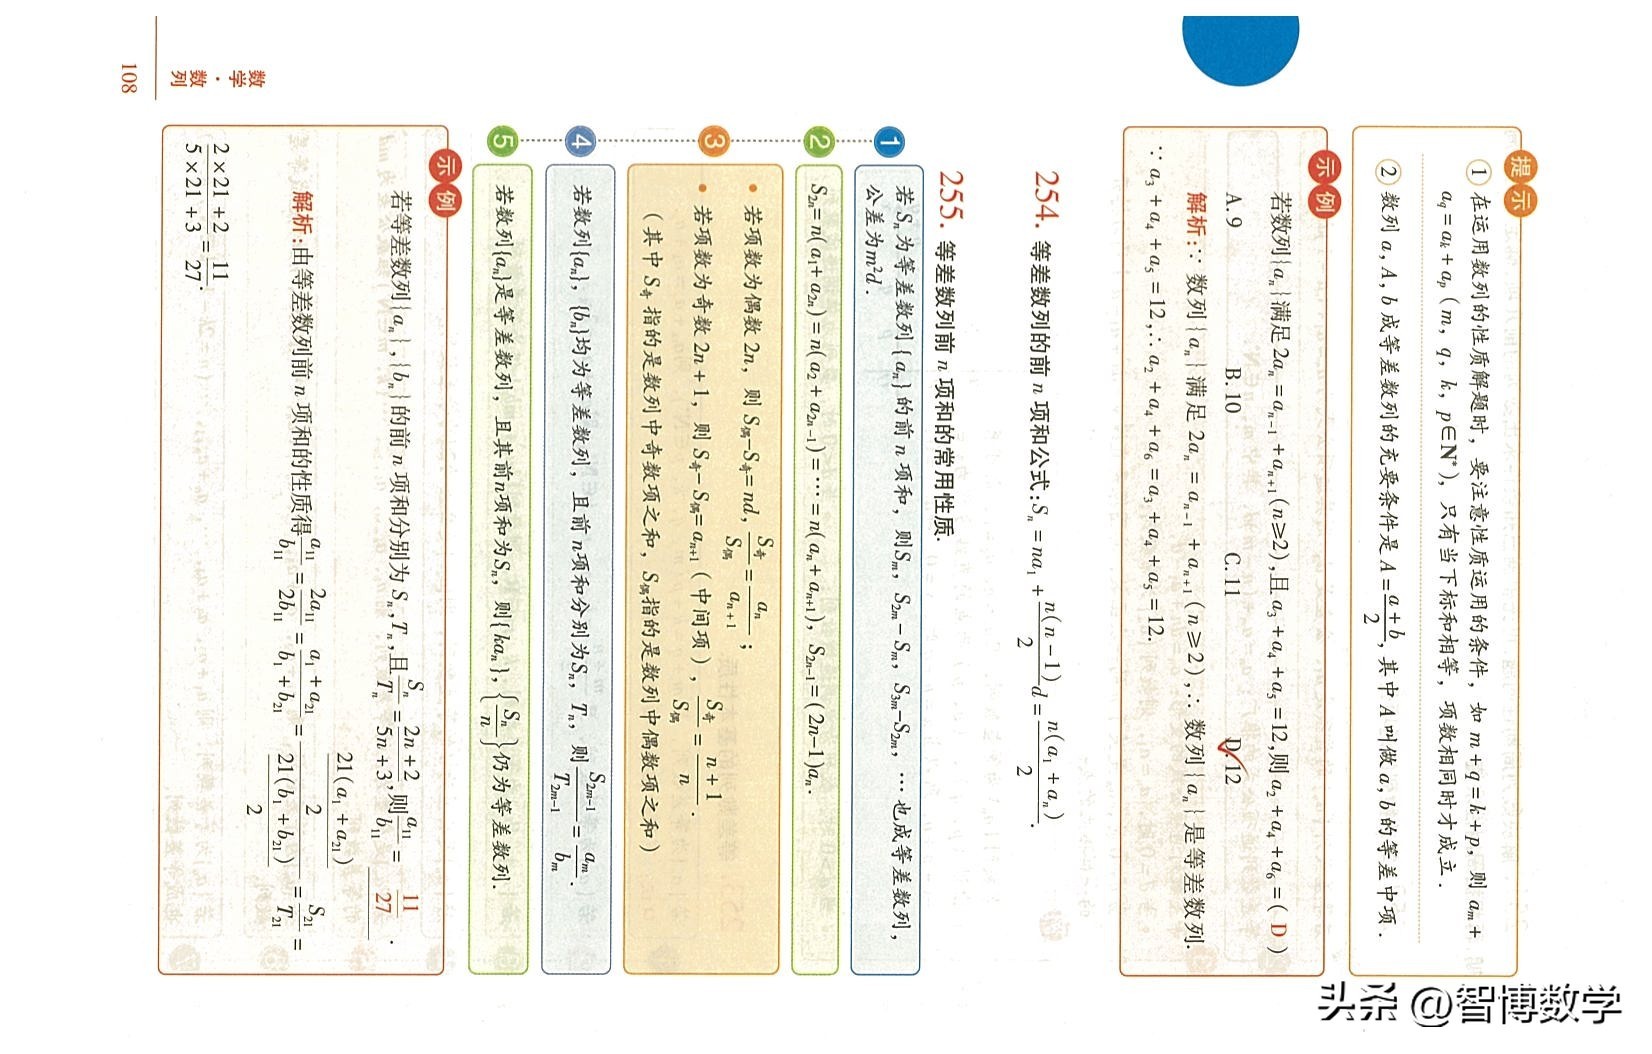 提示
① 在运用数列的性质解题时，要注意性质运用的条件，如 m+q=k+p，则 aₘ+
a_q=aₖ+aₚ (m, q, k, p∈N*)，只有当下标和相等，项数相同时才成立.
② 数列 a, A, b 成等差数列的充要条件是 A=(a+b)/2，其中 A 叫做 a, b 的等差中项.
示例
若数列{aₙ}满足 2aₙ=aₙ₋₁+aₙ₊₁(n≥2)，且 a₃+a₄+a₅=12，则 a₂+a₄+a₆=( D )
A. 9 B. 10 C. 11 D. 12
解析：∵ 数列{aₙ}满足 2aₙ=aₙ₋₁+aₙ₊₁(n≥2)，∴ 数列{aₙ}是等差数列.
∵ a₃+a₄+a₅=12，∴ a₂+a₄+a₆=a₃+a₄+a₅=12.
254. 等差数列的前 n 项和公式：Sₙ=na₁+n(n-1)/2 d=n(a₁+aₙ)/2.
255. 等差数列前 n 项和的常用性质.
1 若 Sₙ 为等差数列{aₙ}的前 n 项和，则 Sₘ, S₂ₘ-Sₘ, S₃ₘ-S₂ₘ, …也成等差数列，
公差为 m²d.
2 S₂ₙ=n(a₁+a₂ₙ)=n(a₂+a₂ₙ₋₁)=…=n(aₙ+aₙ₊₁), S₂ₙ₋₁=(2n-1)aₙ.
3 • 若项数为偶数 2n，则 S偶-S奇=nd, S奇/S偶=aₙ/aₙ₊₁；
• 若项数为奇数 2n+1，则 S奇-S偶=aₙ₊₁（中间项），S奇/S偶=(n+1)/n.
（其中 S奇 指的是数列中奇数项之和，S偶指的是数列中偶数项之和）
4 若数列{aₙ}, {bₙ}均为等差数列，且前 n 项和分别为 Sₙ, Tₙ，则 S₂ₘ₋₁/T₂ₘ₋₁=aₘ/bₘ.
5 若数列{aₙ}是等差数列，且其前 n 项和为 Sₙ，则{kaₙ}, {Sₙ/n}仍为等差数列.
示例
若等差数列{aₙ}, {bₙ}的前 n 项和分别为 Sₙ, Tₙ，且 Sₙ/Tₙ=(2n+2)/(5n+3)，则 a₁₁/b₁₁= 11/27 .
解析：由等差数列前 n 项和的性质得 a₁₁/b₁₁=2a₁₁/2b₁₁=(a₁+a₂₁)/(b₁+b₂₁)=[21(a₁+a₂₁)/2]/[21(b₁+b₂₁)/2]=S₂₁/T₂₁=
(2×21+2)/(5×21+3)=11/27.
数学·数列
108
头条 @智博数学